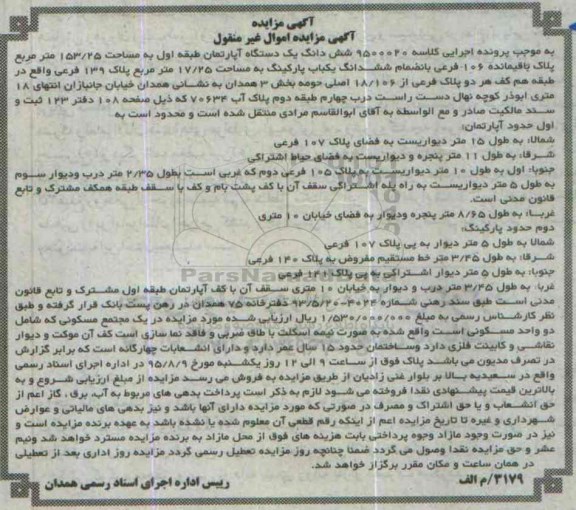 آگهی مزایده
آگهی مزایده اموال غیر منقول
به موجب پرونده اجرایی کلاسه 9500020 شش دانگ یک دستگاه آپارتمان طبقه اول به مساحت 153/25 متر مربع
پلاک باقیمانده 106 فرعی بانضمام ششدانگ یکباب پارکینگ به مساحت 17/25 متر مربع پلاک 139 فرعی واقع در
طبقه هم کف هر دو پلاک فرعی از 18/106 اصلی حومه بخش 3 همدان به نشانی همدان خیابان جانبازان انتهای 18
متری ابوذر کوچه نهال دست راست درب چهارم طبقه دوم پلاک آب 70634 که ذیل صفحه 108 دفتر 123 ثبت و
سند مالکیت صادر و مع الواسطه به آقای ابوالقاسم مرادی منتقل شده است و محدود است به
اول حدود آپارتمان:
شمالا: به طول 15 متر دیواریست به فضای پلاک 107 فرعی
شرقا: به طول 11 متر پنجره و دیواریست به فضای حیاط اشتراکی
جنوبا: اول به طول 10 متر دیواریست به پلاک 105 فرعی دوم که غربی است بطول 2/35 متر درب ودیوار سوم
به طول 5 متر دیواریست به راه پله اشتراکی سقف آن با کف پشت بام و کف با سقف طبقه همکف مشترک و تابع
قانون مدنی است.
غربا: به طول 8/65 متر پنجره ودیوار به فضای خیابان 10 متری
دوم حدود پارکینگ:
شمالا به طول 5 متر دیوار به پی پلاک 107 فرعی
شرقا: به طول 3/45 متر خط مستقیم مفروض به پلاک 140 فرعی
جنوبا: به طول 5 متر دیوار اشتراکی به پی پلاک فرعی
غربا: به طول 3/45 متر درب و دیوار به خیابان 10 متری سقف آن با کف آپارتمان طبقه اول مشترک و تابع قانون
مدنی است طبق سند رهنی شماره 4024-93/5/20 دفترخانه 75 همدان در رهن پست بانک قرار گرفته و طبق
نظر کارشناس رسمی به مبلغ 1/530/000/000 ریال ارزیابی شده مورد مزایده در یک مجتمع مسکونی که شامل
دو واحد مسکونی است واقع شده به صورت نیمه اسکلت با طاق ضربی و فاقد نما سازی است کف آن موکت و دیوار
نقاشی و کابینت فلزی دارد وساختمان حدود 15 سال عمر دارد و دارای انشعابات چهارگانه است که برابر گزارش
در تصرف مدیون می باشد پلاک فوق از ساعت 9 الی 12 روز یکشنبه مورخ 95/8/9 در اداره اجرای اسناد رسمی
واقع در سعیدیه بالا بر بلوار غنی زادیان از طریق مزایده به فروش می رسد مزایده از مبلغ ارزیابی شروع و به
بالاترین قیمت پیشنهادی نقدا فروخته می شود لازم به ذکر است پرداخت بدهی های مربوط به آب، برق ، گاز اعم از
حق انشعاب و یا حق اشتراک و مصرف در صورتی که مورد مزایده دارای آنها باشد و نیز بدهی های مالیاتی و عوارض
شهرداری و غیره تا تاریخ مزایده اعم از اینکه رقم قطعی آن معلوم شده یا نشده باشد به عهده برنده مزایده است و
نیز در صورت وجود مازاد وجوه پرداختی بابت هزینه های فوق از محل مازاد به برنده مزایده مسترد خواهد شد ونیم
عشر و حق مزایده نقدا وصول می گردد ضمنا چنانچه روز مزایده تعطیل رسمی گردد مزایده روز اداری بعد از تعطیلی
در همان ساعت و مکان مقرر برگزار خواهد شد.
3179/م الف
رییس اداره اجرای اسناد رسمی همدان